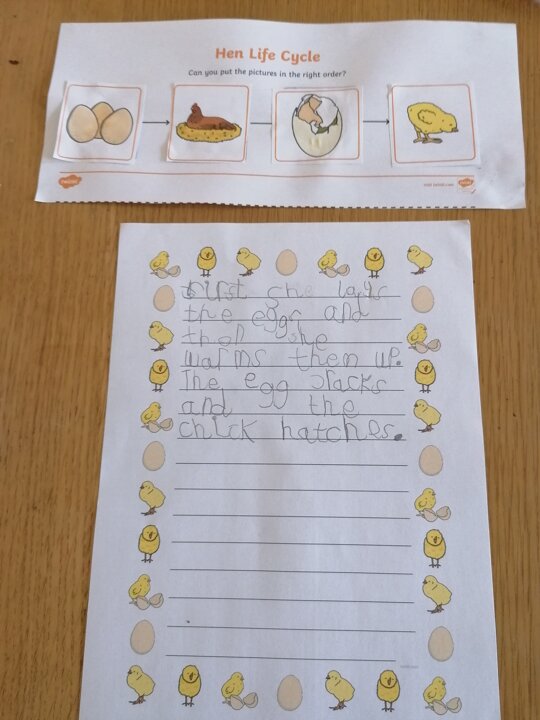 Hen Life Cycle
Can you put the pictures in the right order?
twinkl
visit twinkl.com
furst she lays
the eggs and
then she
warms them up.
The egg cracks
and the
chick hatches.